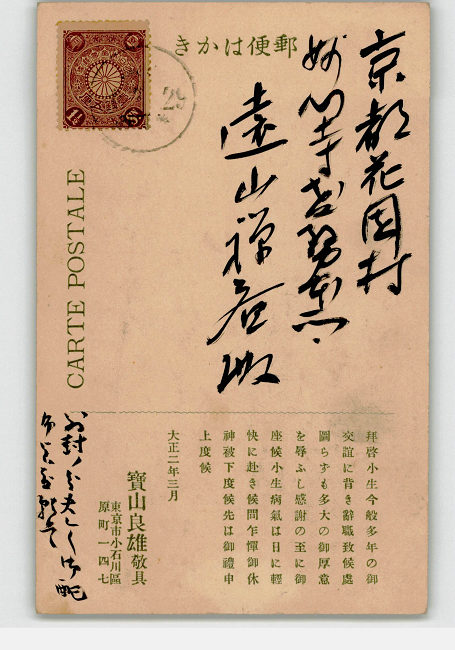 郵便はかき
CARTE POSTALE
1½
29
京都花園村
妙心寺
遠山禅
拜啓小生今般多年の御
交誼に背き辭職致候處
圖らずも多大の御厚意
を辱ふし感謝の至に御
座候小生病氣は日に輕
快に赴き候間乍憚御休
神被下度候先は御禮申
上度候
大正二年三月
寶山良雄敬具
東京市小石川區
原町一四七